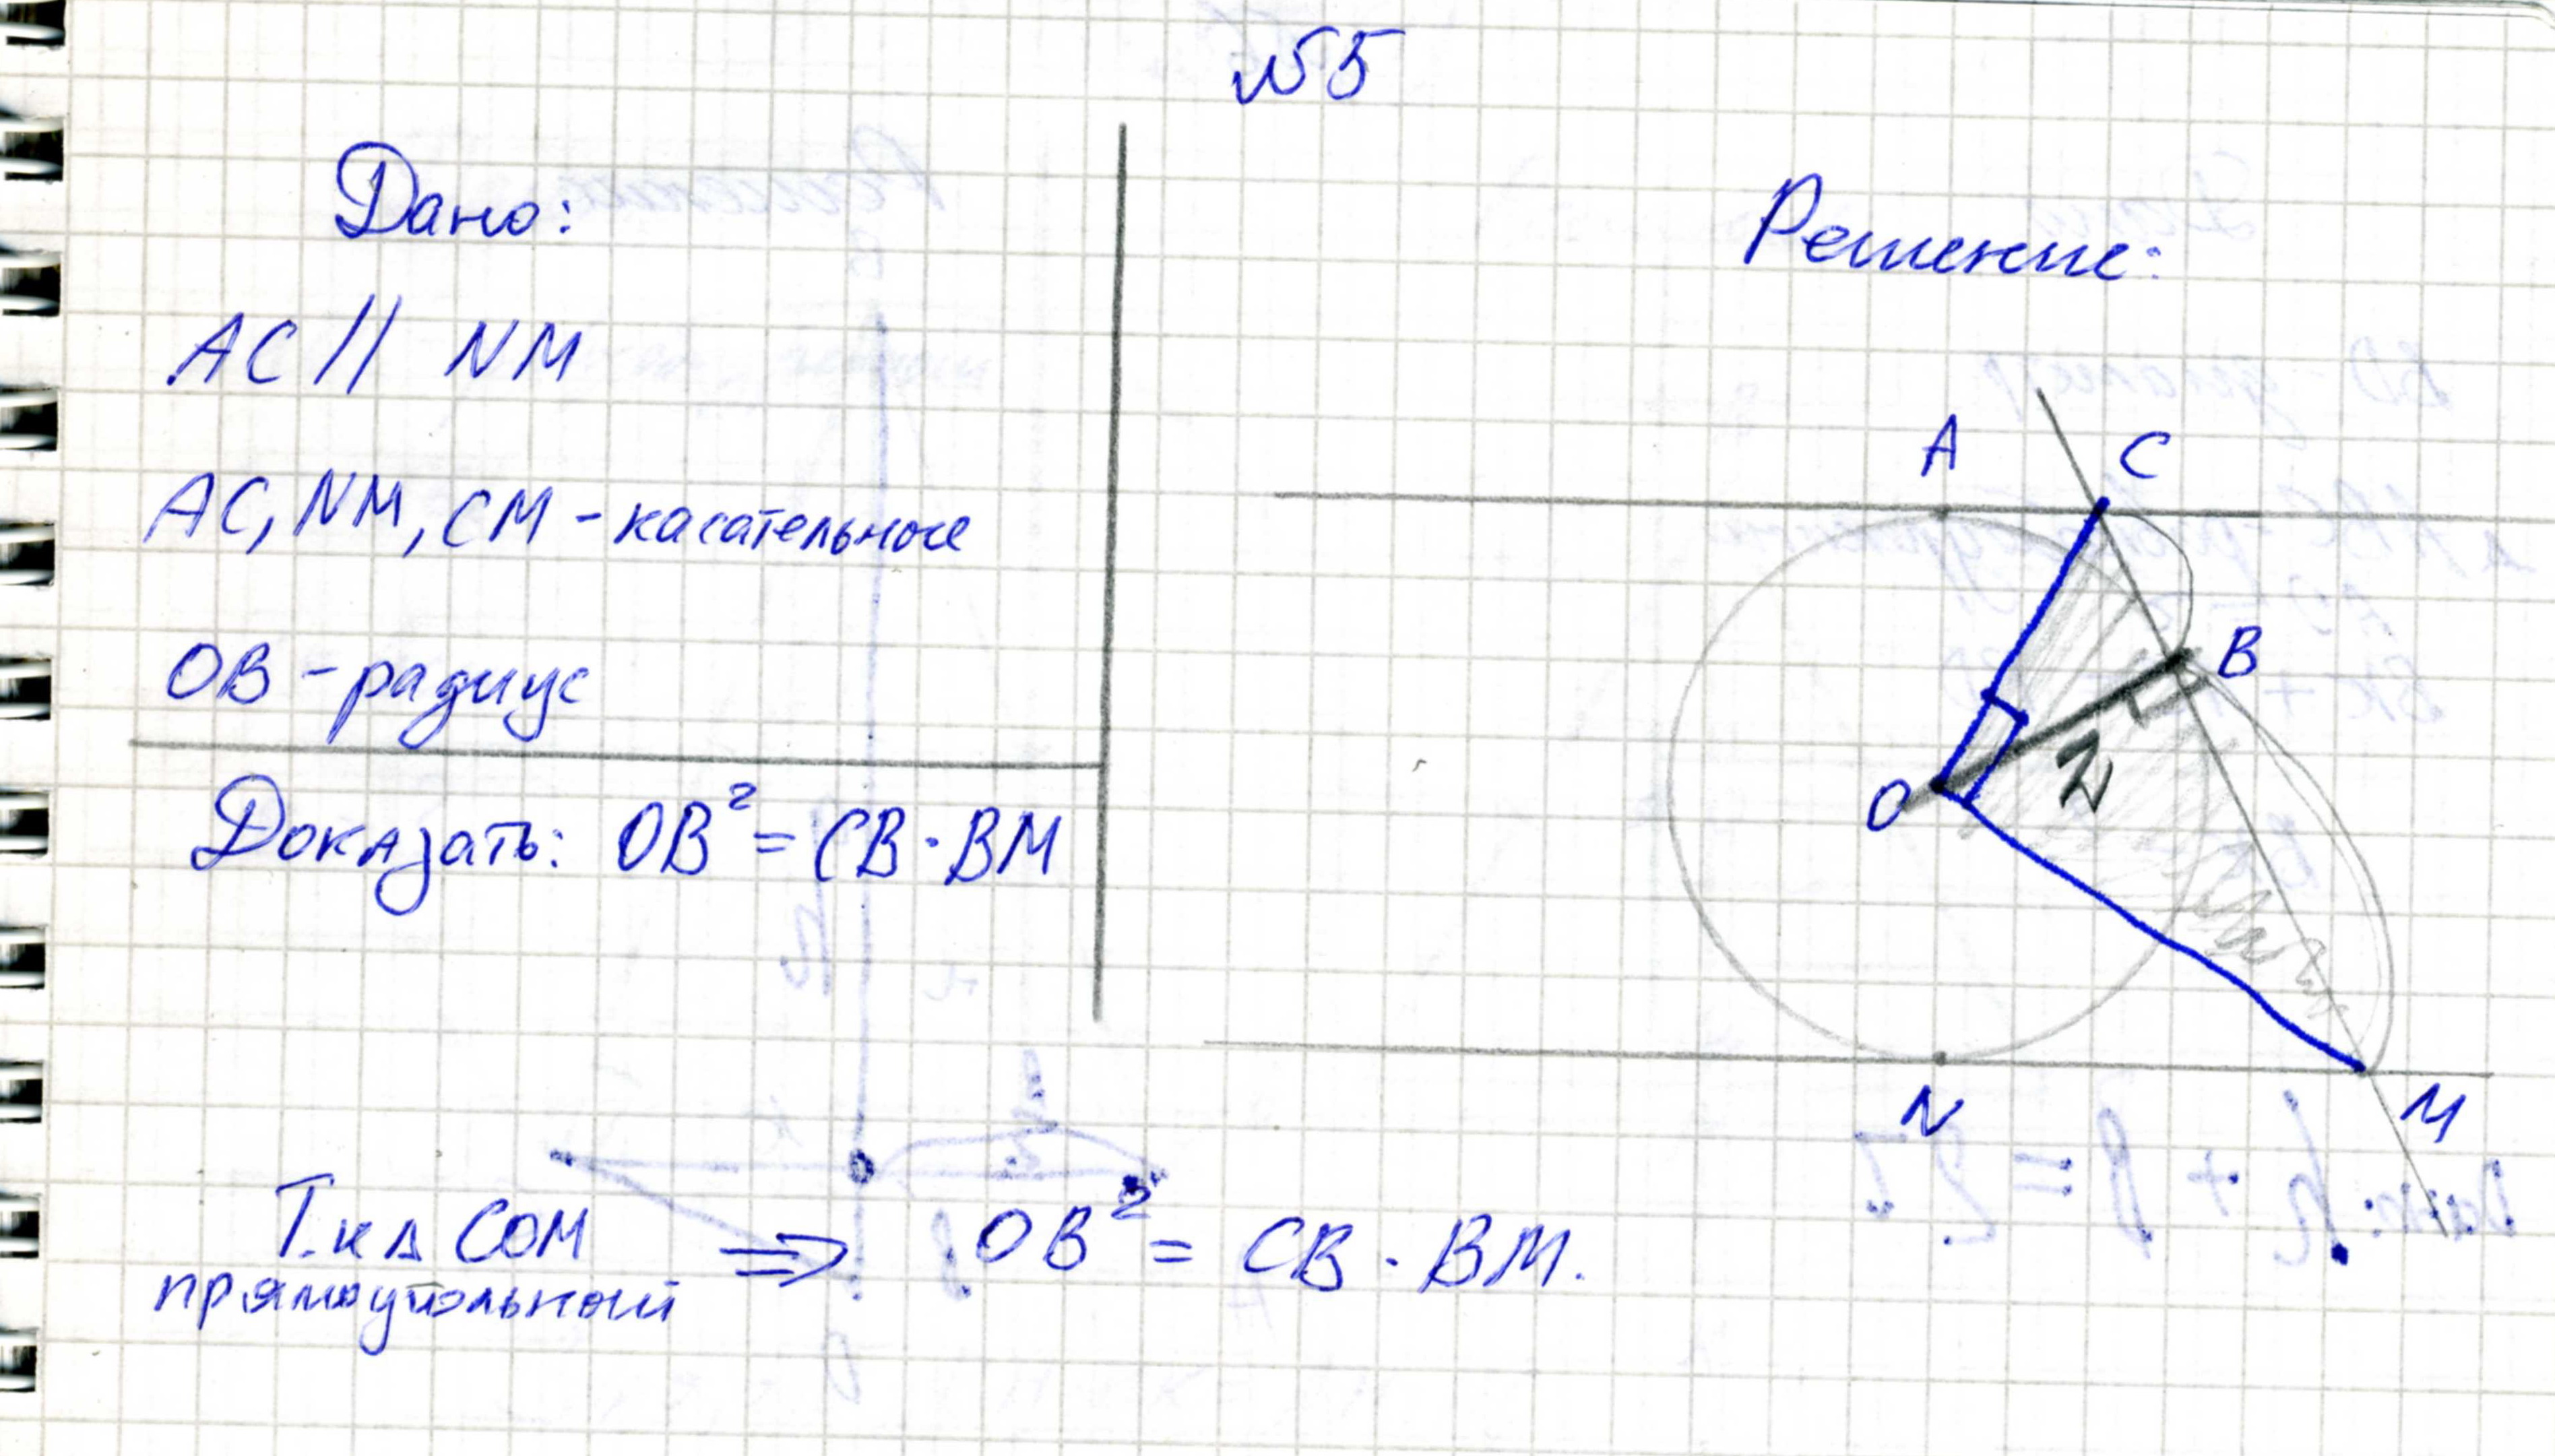 №5
Дано:
AC // NM
AC, NM, CM - касательные
OB - радиус
Доказать: OB² = CB · BM
Решение:
A
C
B
O
r
N
M
Т.к Δ COM
прямоугольный
⇒ OB² = CB · BM.